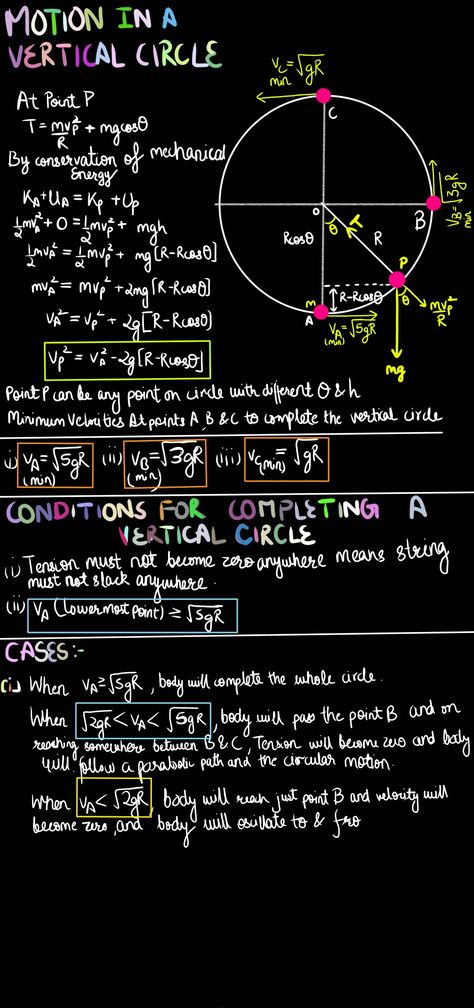 MOTION IN A
VERTICAL CIRCLE
At Point P
T = mv_P²/R + mgcosθ
By conservation of mechanical
Energy
K_A + U_A = K_P + U_P
½mv_A² + 0 = ½mv_P² + mgh
½mv_A² = ½mv_P² + mg[R-Rcosθ]
mv_A² = mv_P² + 2mg[R-Rcosθ]
v_A² = v_P² + 2g[R-Rcosθ]
v_P² = v_A² - 2g[R-Rcosθ]
v_C = √gR
min
C
O
θ
T
R
Rcosθ
B
V_B = √3gR
min
P
θ
R-Rcosθ
M
A
V_A = √5gR
(min)
mv_P²/R
mg
Point P can be any point on circle with different θ & h
Minimum Velocities At points A, B & C to complete the vertical circle
i) V_A = √5gR (ii) V_B = √3gR (iii) V_C(min) = √gR
(min) (min)
CONDITIONS FOR COMPLETING A
VERTICAL CIRCLE
(i) Tension must not become zero anywhere means string
must not slack anywhere.
(ii) V_A (lowermost point) ≥ √5gR
CASES:-
(i) When V_A ≥ √5gR, body will complete the whole circle.
When √2gR < V_A < √5gR, body will pass the point B and on
reaching somewhere between B & C, Tension will become zero and body
will follow a parabolic path and the circular motion.
When V_A < √2gR, body will reach just point B and velocity will
become zero, and body will osillate to & fro